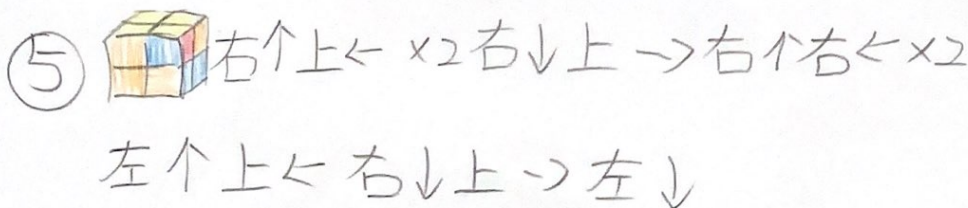 ⑤ 右↑上←×2右↓上→右↑右←×2
左↑上←右↓上→左↓